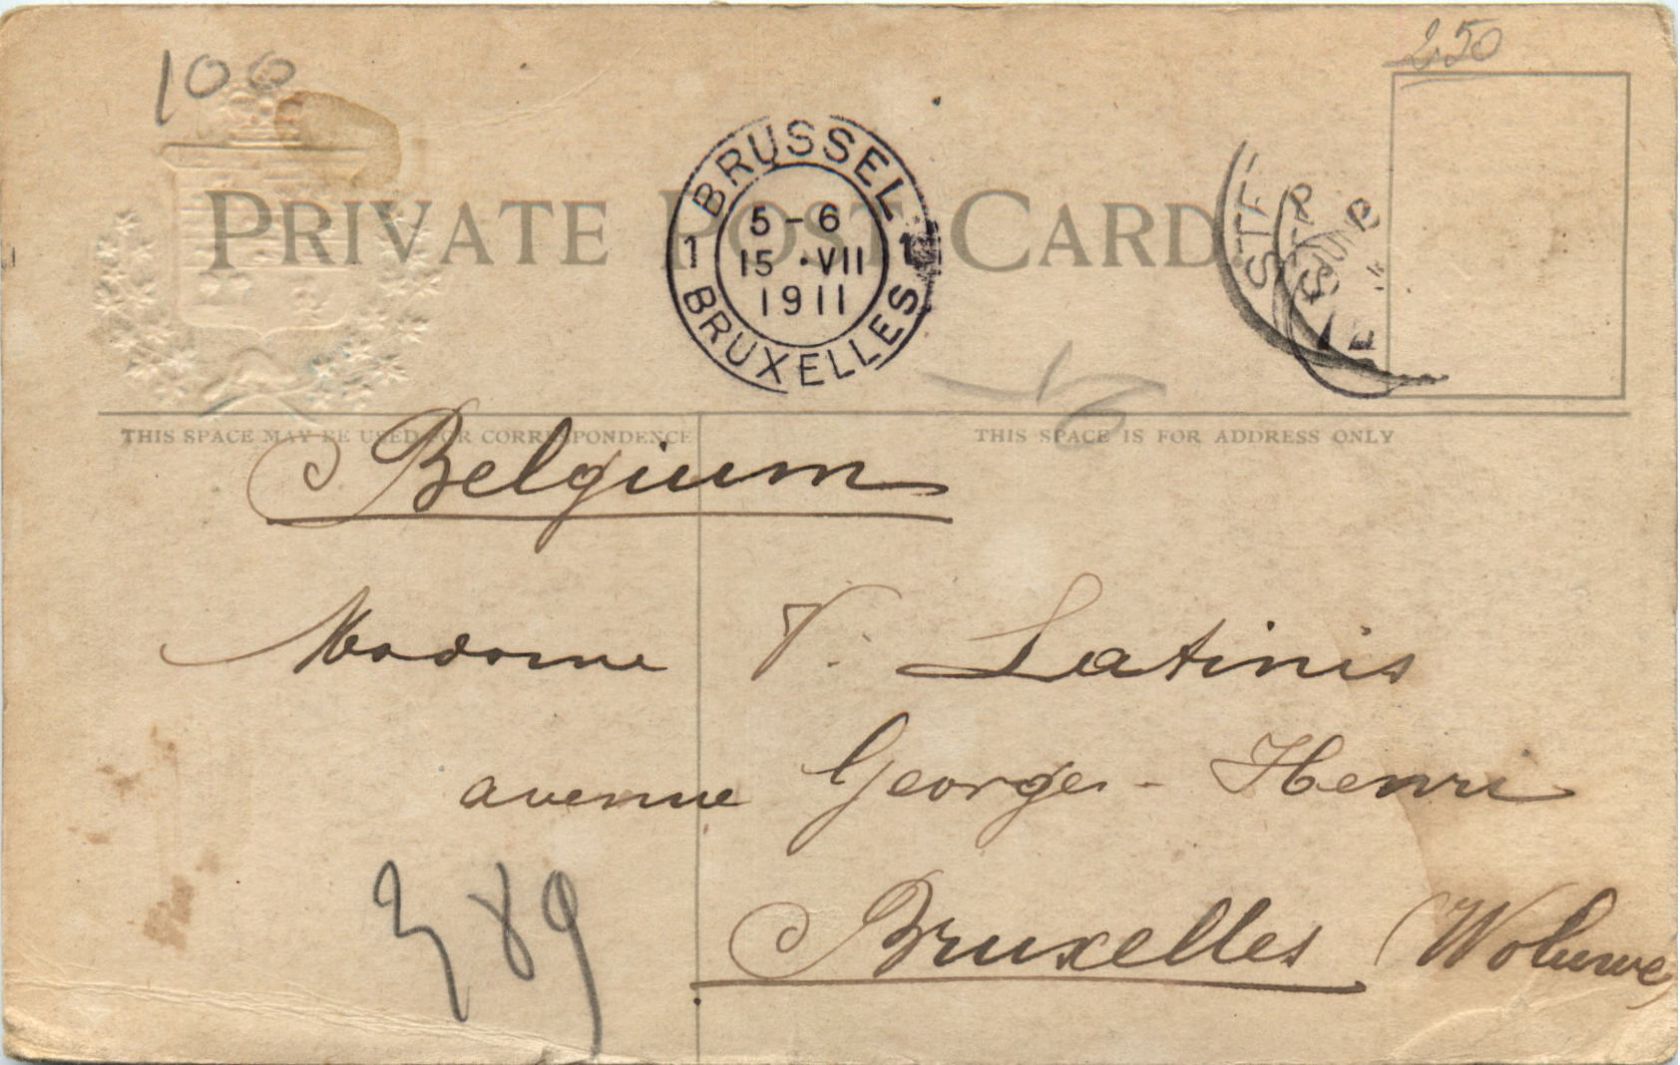 100
250
PRIVATE POST CARD
BRUSSEL
1 5-6 1
15 ·VII
1911
BRUXELLES
THIS SPACE MAY BE USED FOR CORRESPONDENCE
THIS SPACE IS FOR ADDRESS ONLY
Belgium
Madame V. Latinis
avenue Georges-Henri
Bruxelles (Woluwe)